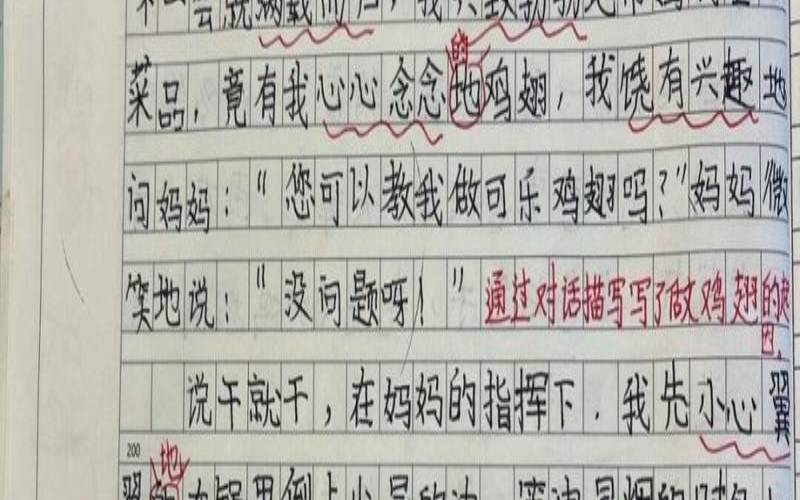 不一会就满载而归，我兴致勃勃地
的
菜品，竟有我心心念念地鸡翅，我饶有兴趣地
问妈妈：“您可以教我做可乐鸡翅吗？”妈妈微
笑地说：“没问题呀！”通过对话描写写了做鸡翅的起
因.
说干就干，在妈妈的指挥下．我先小心翼
200
地
翼的在锅里倒上少量的油